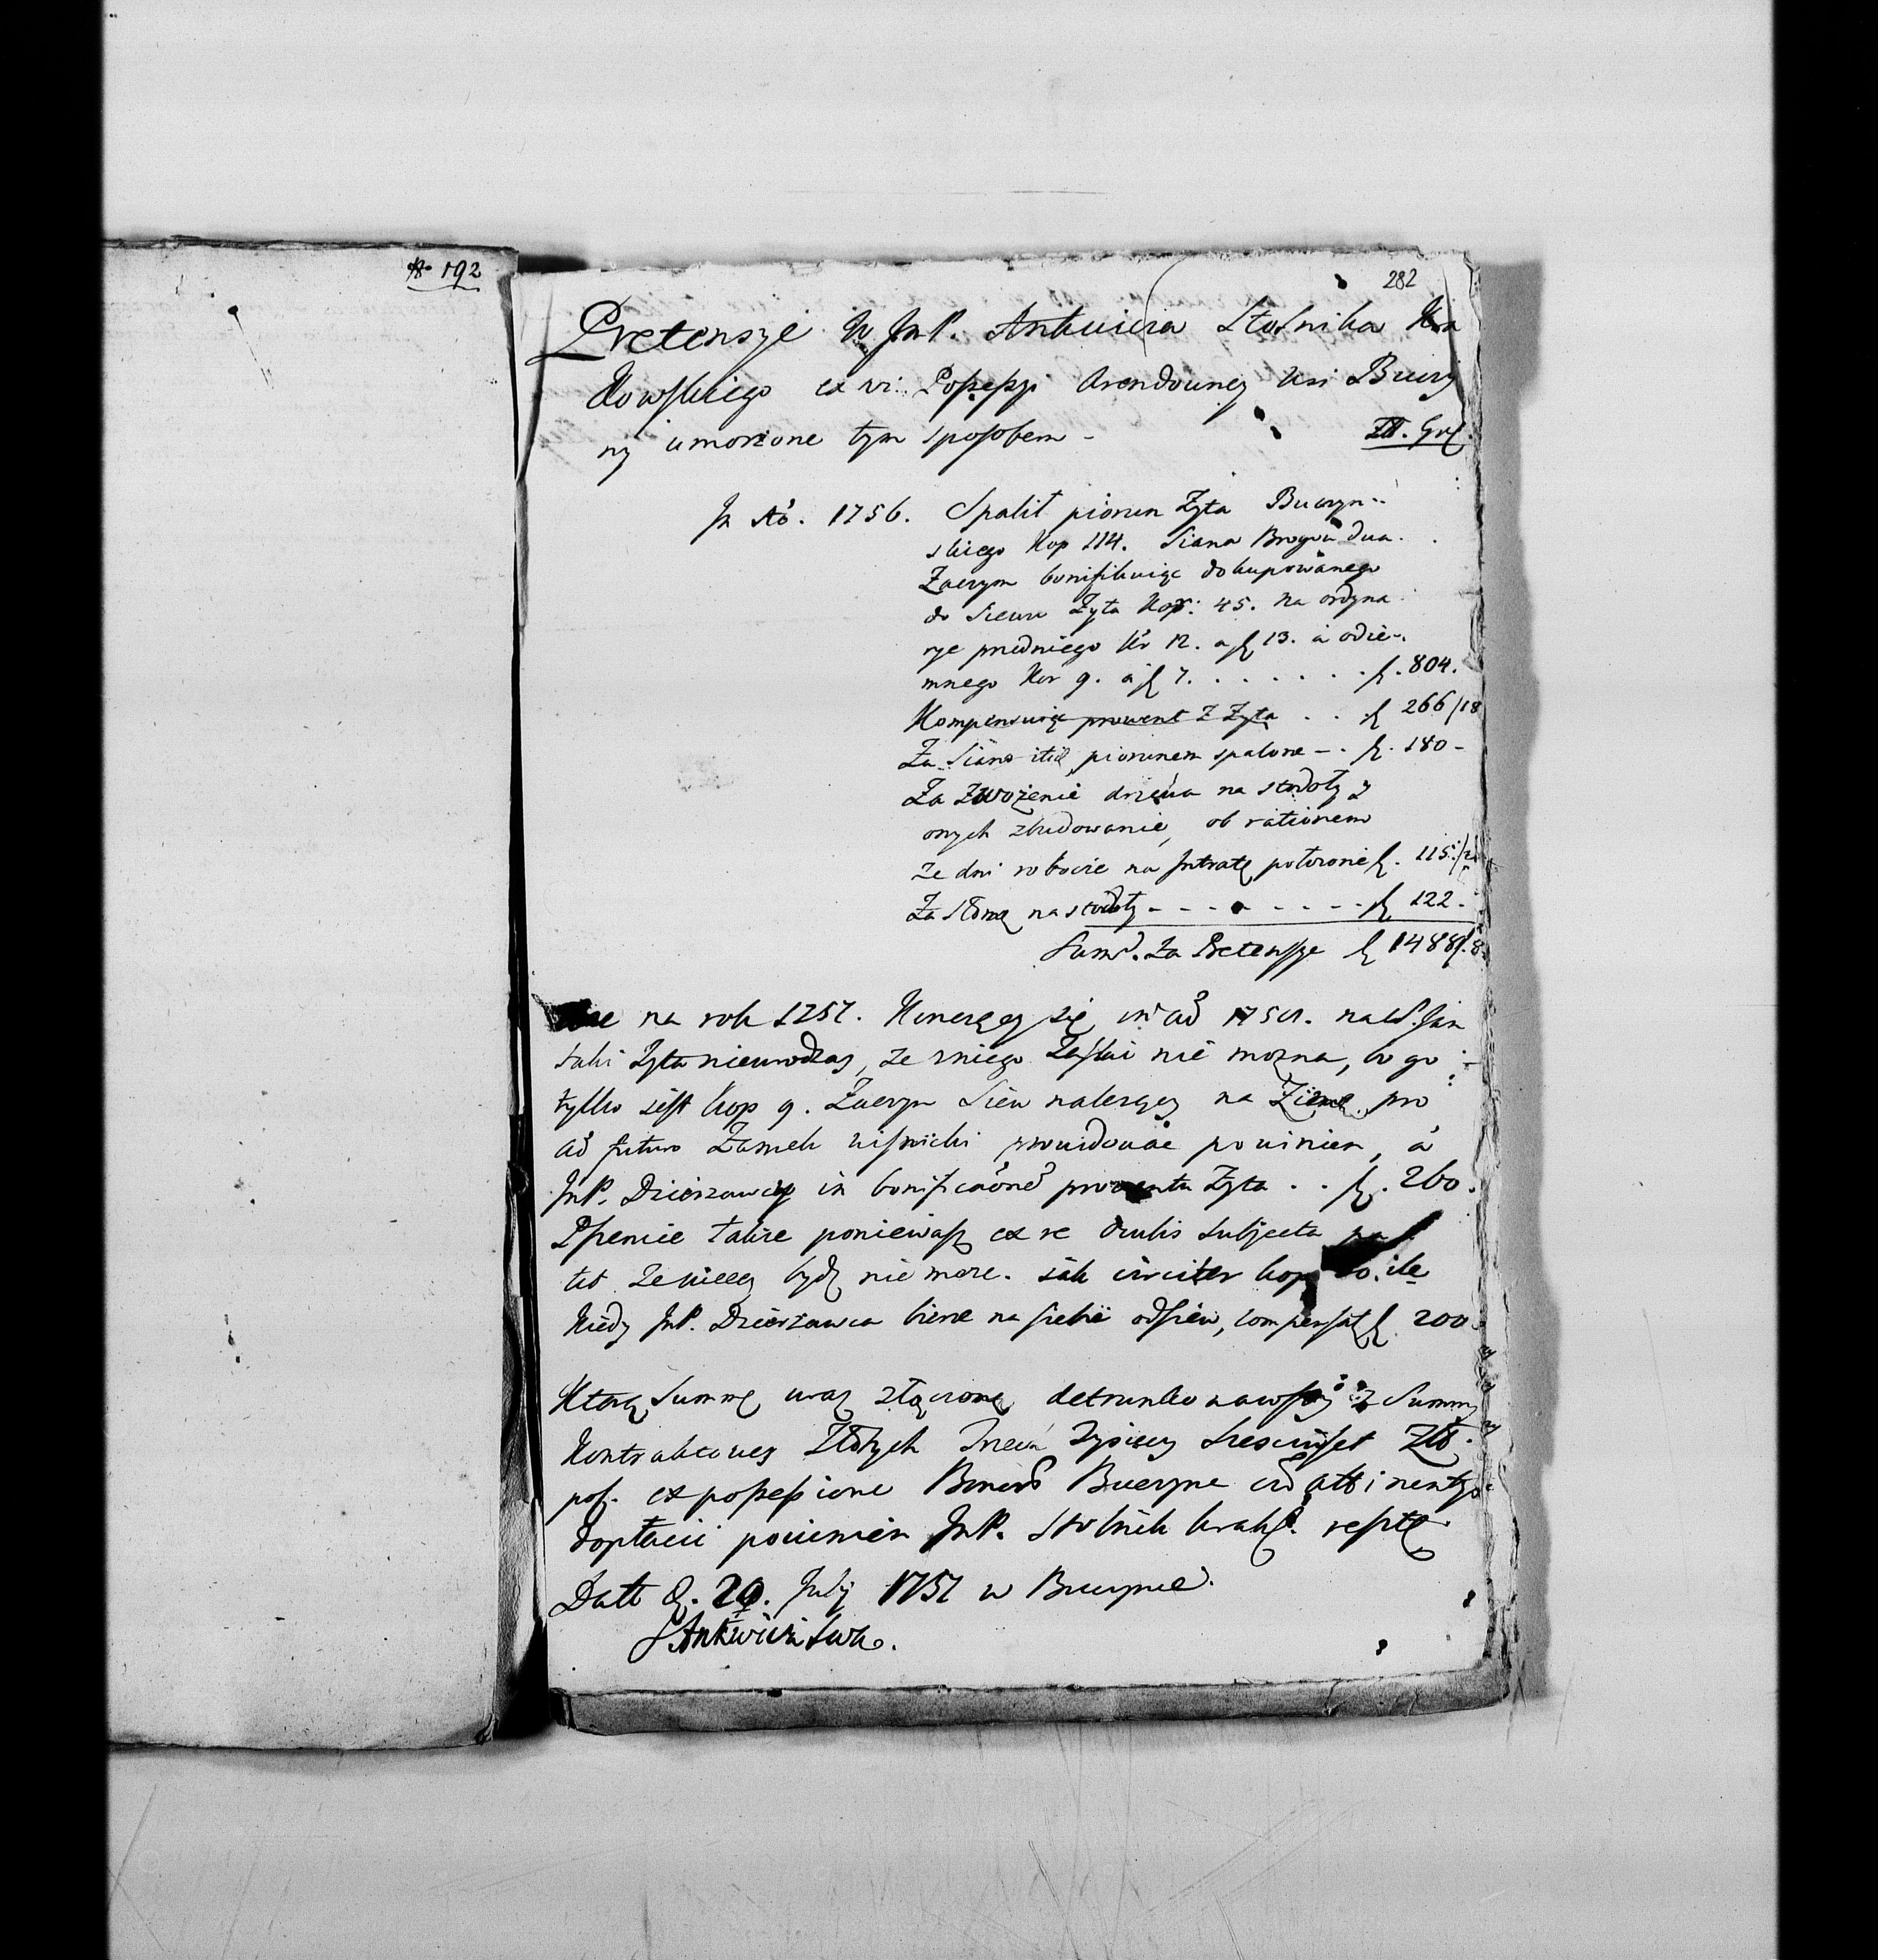 192
282
Pretensye W JmP. Ankwicza Stolnika Kra
kowskiego ex vi Possessyi Arendowney wsi Buczy
ny umorzone tym sposobem -
Złł. Gr.
In Ao. 1756. Spalił piorun Zyta Buczyn=
skiego Kop 114. Siana Brogów dwa.
Zaczym bonifikuię dokupowanego
do Siewu Zyta Kor: 45. na ordyna
rye przedniego kr 12. a f 13. a odzie-
mnego Kor 9. a f 7. . . . . . . f. 804.
Kompensuię prowent z Zyta . . f 266/18
Za Siano itid piorunem spalone - . f. 180 -
Za Zwożenie drzewa na stodoły y
onych zbudowanie, ob rationem
że dni robocze na Intratę położone f. 115:/
Za Słomę na stodoły - - - - - - - f 122.
Sum. Za Pretensye f 1488/.8
na rok 1757. Konczący się in Ao 1758. na S. Jan
taki Zyta nieurodzay, że z niego Zasiać nie można, bo go
tylko iest kop 9. Zaczym Siew należący na Zimę pro
Ao futuro Zamek Wisnicki prowidować powinien, a
JmP. Dzierzawcy in bonificaone prowentu Zyta . . f. 260.
Pszenice także ponieważ ex re oculis subjecta
że więcey bydź nie może. iak circiter kop
kiedy JmP. Dzierżawca bierze na siebie odsiew, compensat f. 200
Którą Summę wraz złączoną detrunkowawszy z Summy
Kontraktowey Złotych Trzech Tysięcy Szesciuset Złł.
pol. ex possessione Bonor Buczyne cu attinentys
dopłacić powinien JmP. Stolnik krak. resztę
Datt d. 20. July 1757 w Buczynie.
Ankwicz Swk.